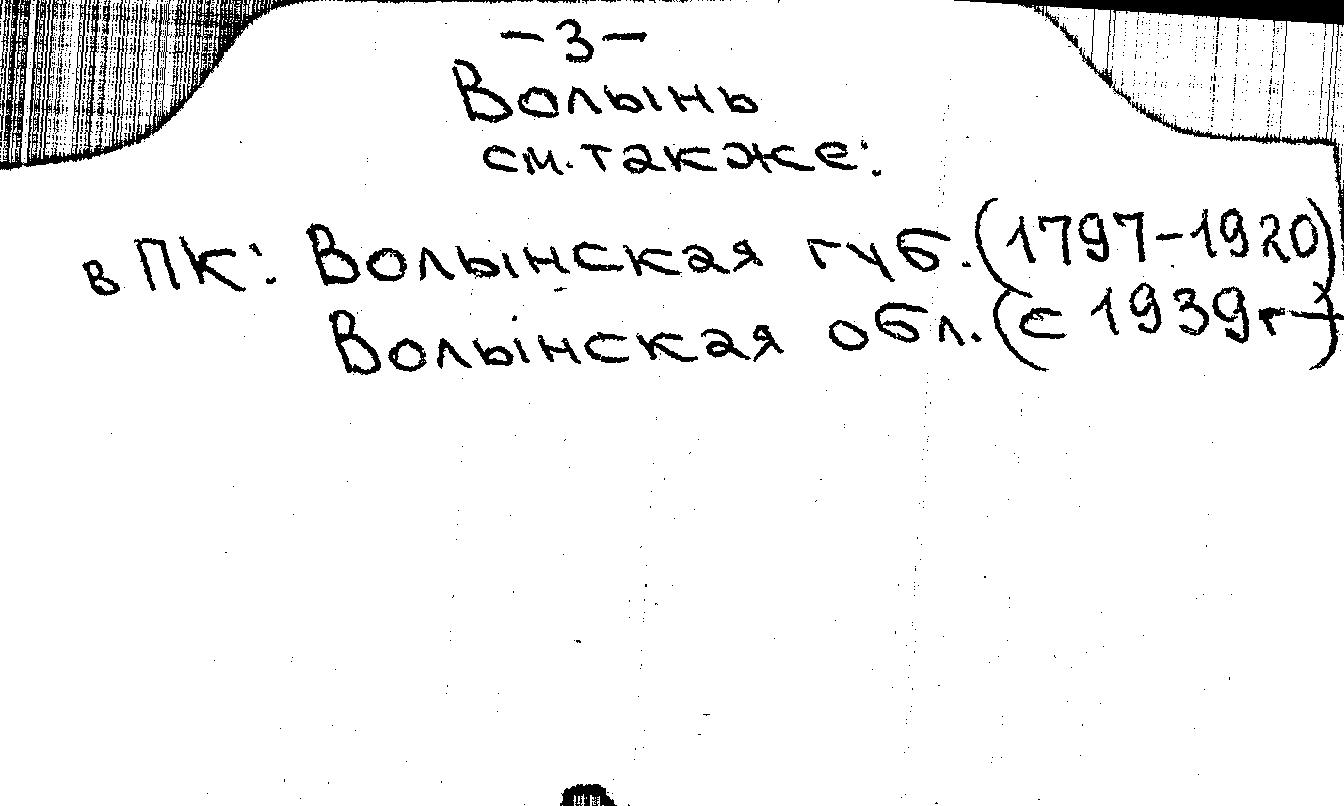 -3-
Волынь
см. также:
в ПК: Волынская губ. (1797-1920)
Волынская обл. (с 1939г-)